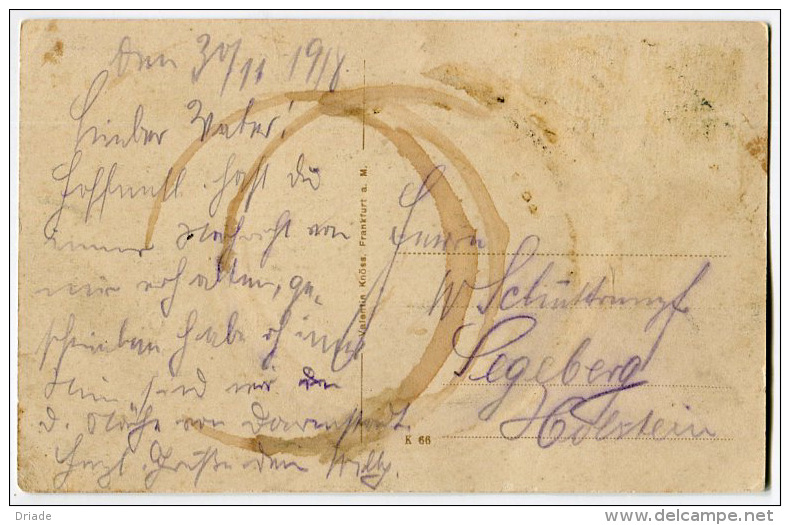 den 30/11 1918.
Lieber Vater!
Hoffentl. hast du
immer Nachricht von
mir erhalten, ge-
schrieben habe ich immer
Nun sind wir in
d. Nähe von Darmstadt.
Herzl. Grüße dein Willy.
Valentin Knöss, Frankfurt a. M.
K 66
Herrn
W Schüttrumpf
Segeberg
Holstein
Driade
http://www.delcampe.net